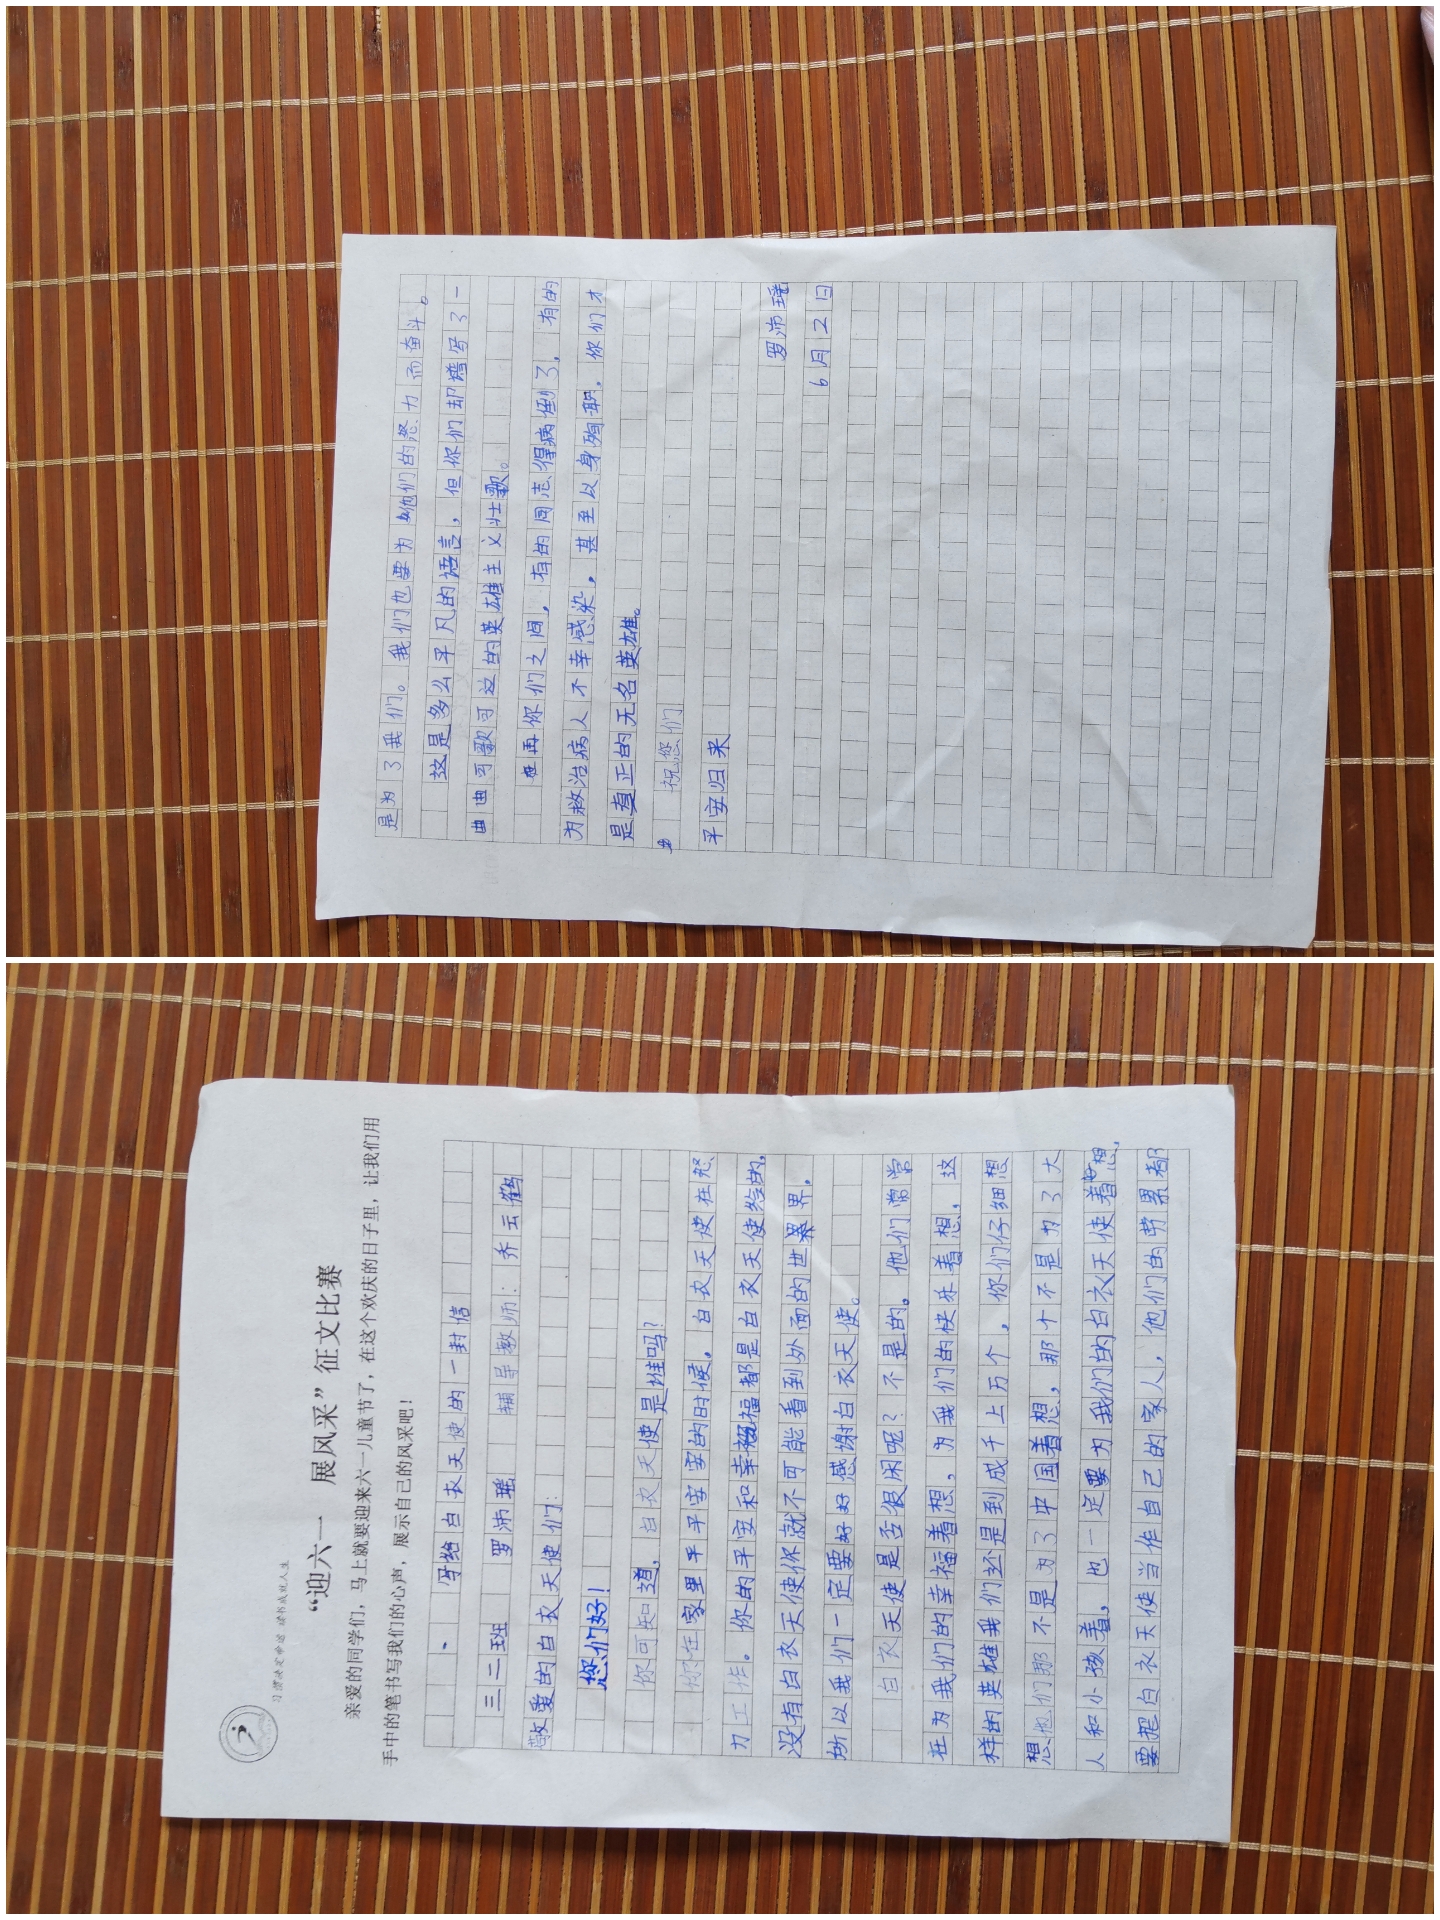 习惯决定命运 读书成就人生
“迎六一 展风采”征文比赛
亲爱的同学们，马上就要迎来六一儿童节了，在这个欢庆的日子里，让我们用
手中的笔书写我们的心声，展示自己的风采吧！
写给白衣天使的一封信
三二班 罗沛瑶 辅导教师：乔云鹤
敬爱的白衣天使们：
您们好！
你可知道，白衣天使是谁吗？
你在家里平平安安的时候，白衣天使在怒
力工作。你的平安和幸福都是白衣天使给的，
没有白衣天使你就不可能看到外面的世界，
所以我们一定要好好感谢白衣天使。
白衣天使是否很闲呢？不是的。他们常常
在为我们的幸福着想，为我们的快乐着想，这
样的英雄我们还是到成千上万个，你们仔细想
想他们那不是为了中国着想，那个不是为了大
人和小孩着，也一定要为我们的白衣天使着想，
要把白衣天使当作自己的家人，他们的劳累都
是为了我们。我们也要为她们的怒力而奋斗。
这是多么平凡的语言，但你们却谱写了一
曲曲可歌可泣的英雄主义壮歌。
再你们之间，有的同志得病倒了，有的
为救治病人不幸感染，甚至以身殉职，你们才
是真正的无名英雄。
祝您们
平安归来
罗沛瑶
6月2日